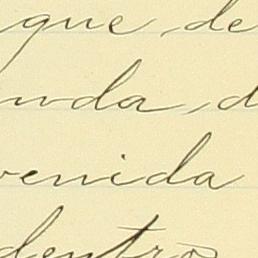 que de
nda, d
venida
dentro